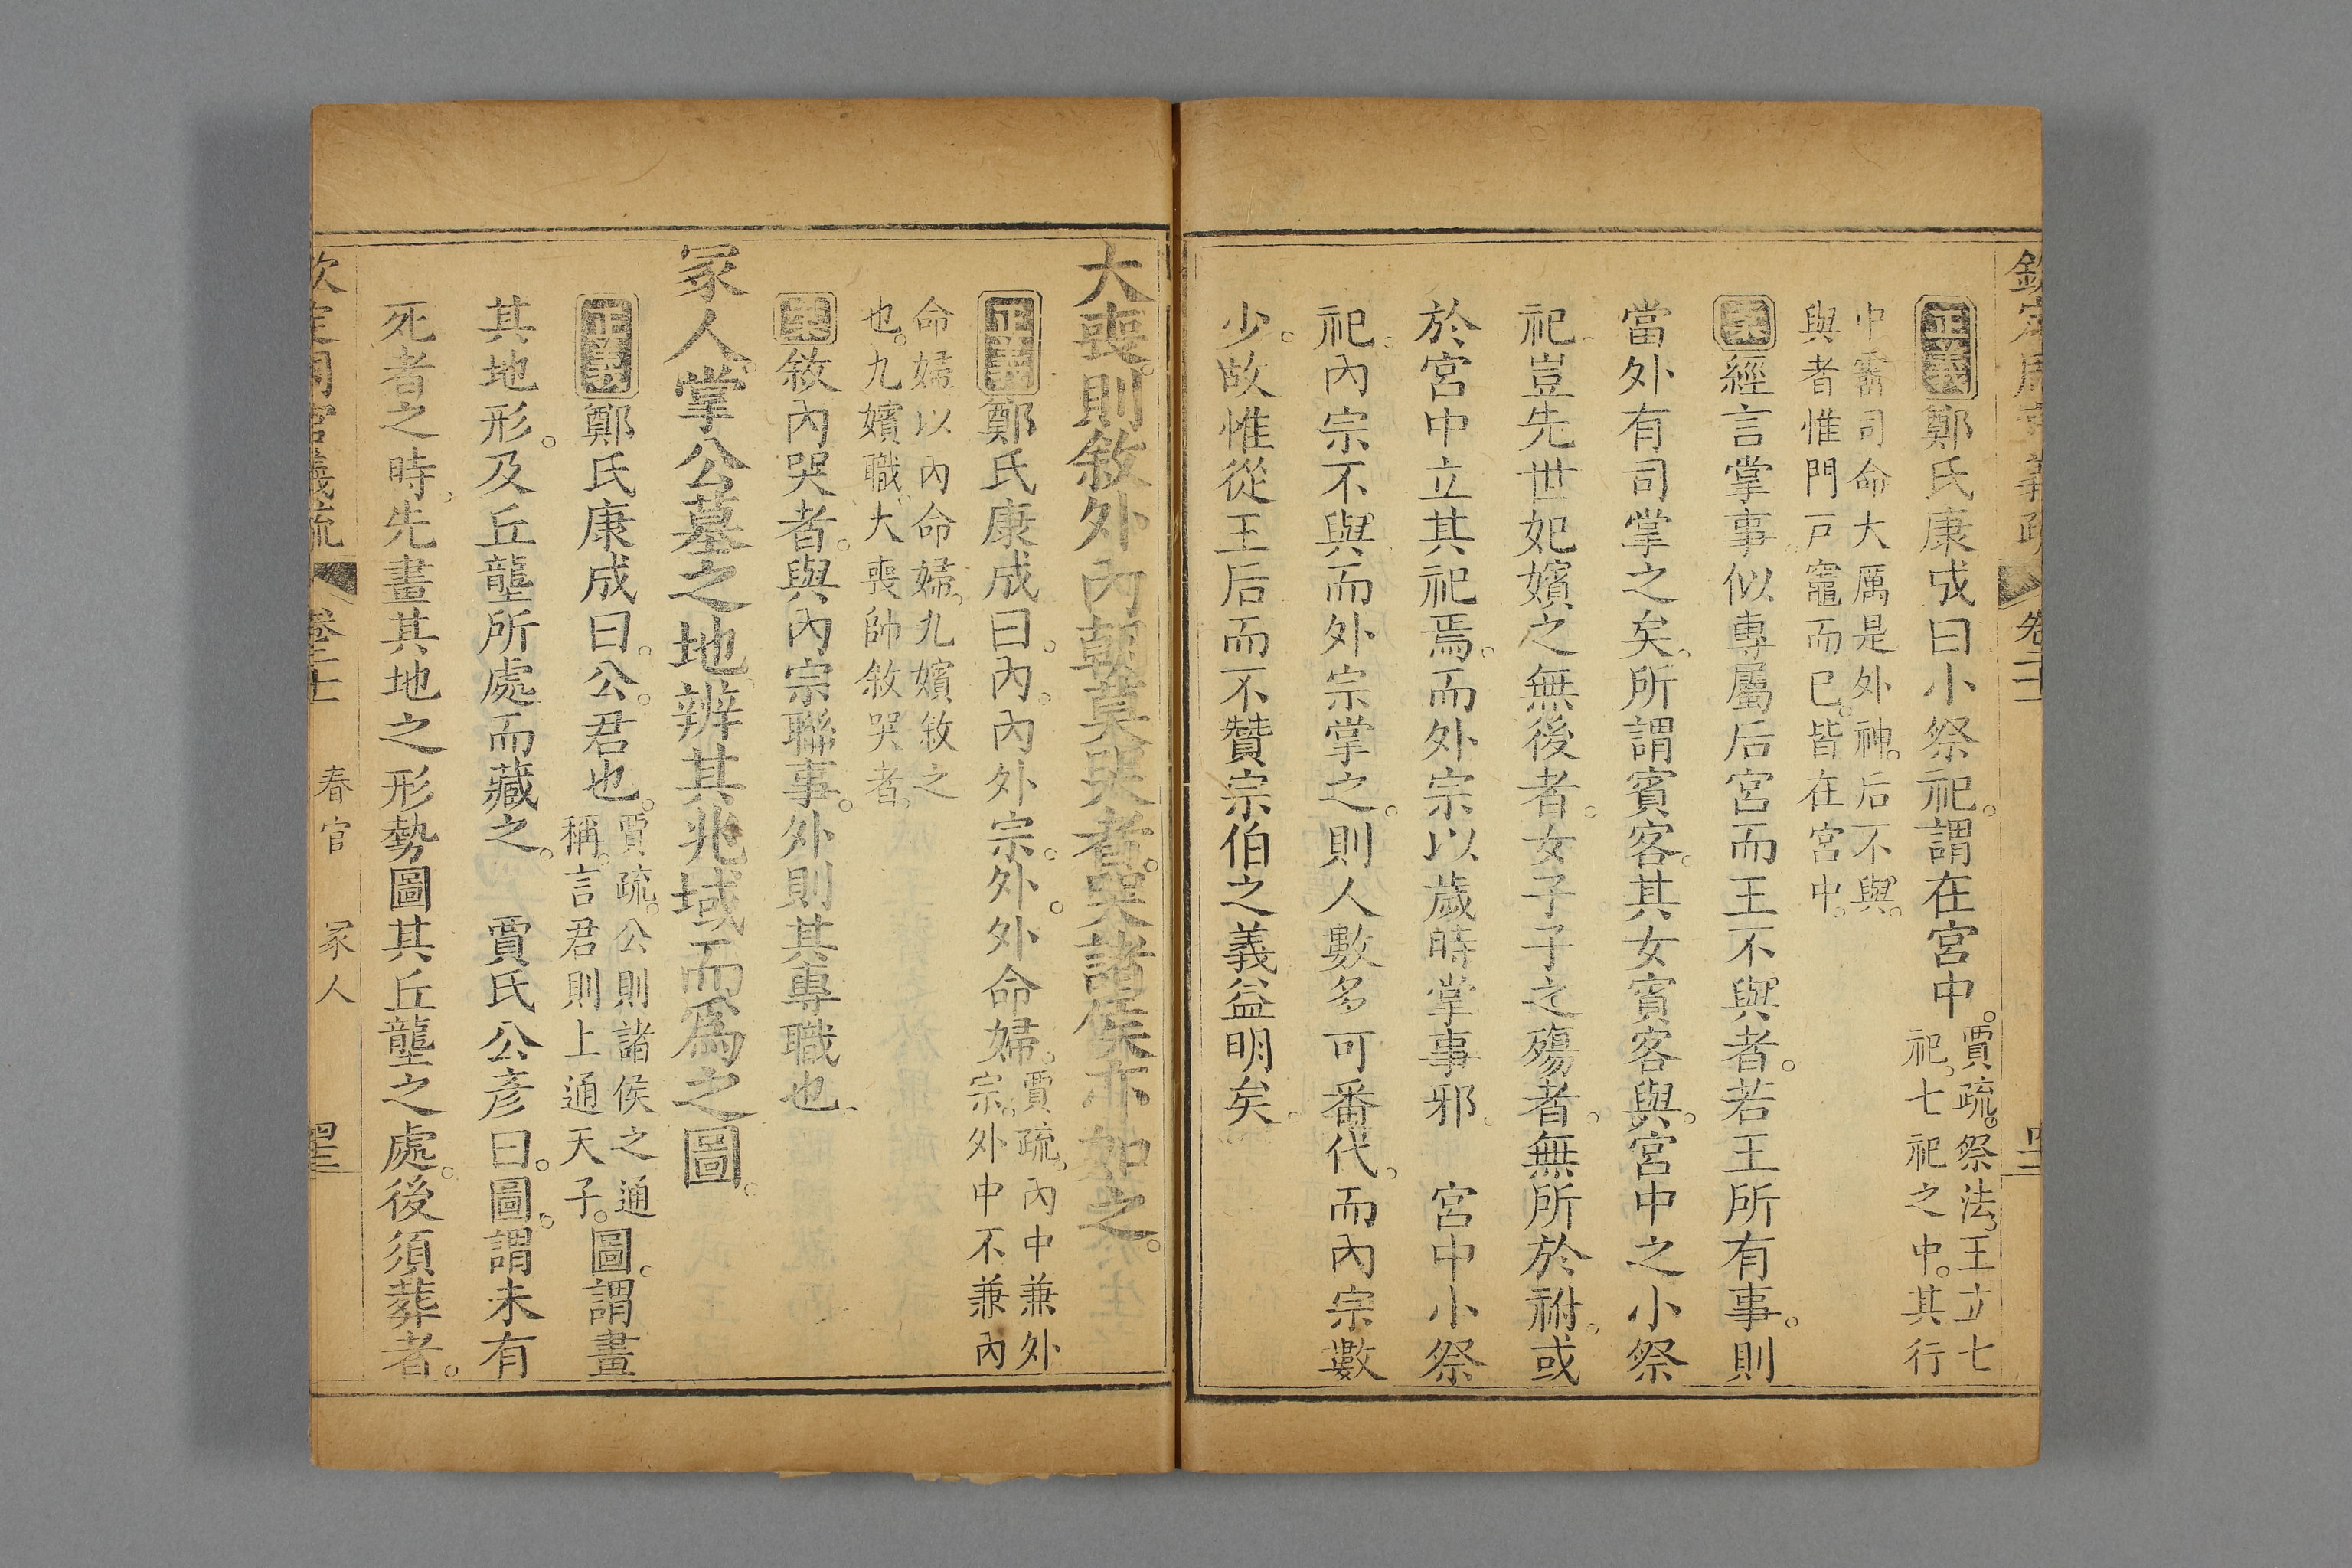 欽定周官義疏
正義鄭氏康成曰小祭祀。謂在宮中。賈疏。祭法。王立七祀。七祀之中。其行
中霤司命大厲是外神。后不與。與者惟門戶竈而已。皆在宮中。
案經言掌事。似專屬后宮而王不與者。若王所有事。則
當外有司掌之矣。所謂賓客。其女賓客與。宮中之小祭
祀。豈先世妃嬪之無後者。女子子之殤者。無所於祔。或
於宮中立其祀焉。而外宗以歲時掌事邪。 宮中小祭
祀。內宗不與而外宗掌之。則人數多可番代。而內宗數
少。故惟從王后而不贊宗伯之義益明矣。
大喪。則敘外內朝莫哭者。哭諸侯亦如之。
正義鄭氏康成曰。內。內外宗。外。外命婦。賈疏。內中兼外宗。外中不兼內
命婦以內命婦。九嬪敘之也。九嬪職。大喪帥敘哭者。
案敘內哭者。與內宗聯事。外則其專職也。
冢人。掌公墓之地。辨其兆域而為之圖。
正義鄭氏康成曰。公。君也。賈疏。公則諸侯之通稱。言君則上通天子。圖。謂畫
其地形。及丘壟所處而藏之。 賈氏公彥曰。圖。謂未有
死者之時。先畫其地之形勢圖其丘壟之處。後須葬者。
欽定周官義疏 春官 冢人